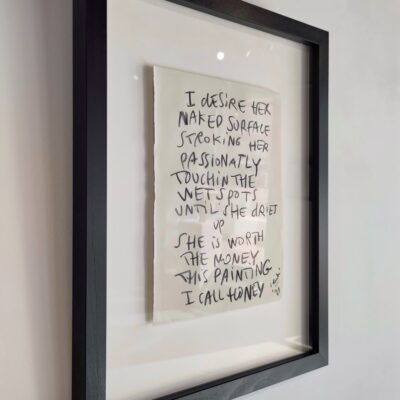 I DESiRE HER
NAKED SURFACE
STROKiNG HER
PASSiONATLY
TOUCHiN THE
WET SPOTS
UNTiL SHE DRiET
UP
SHE iS WORTH
THE MONEY
THiS PAiNTiNG
I CALL HONEY